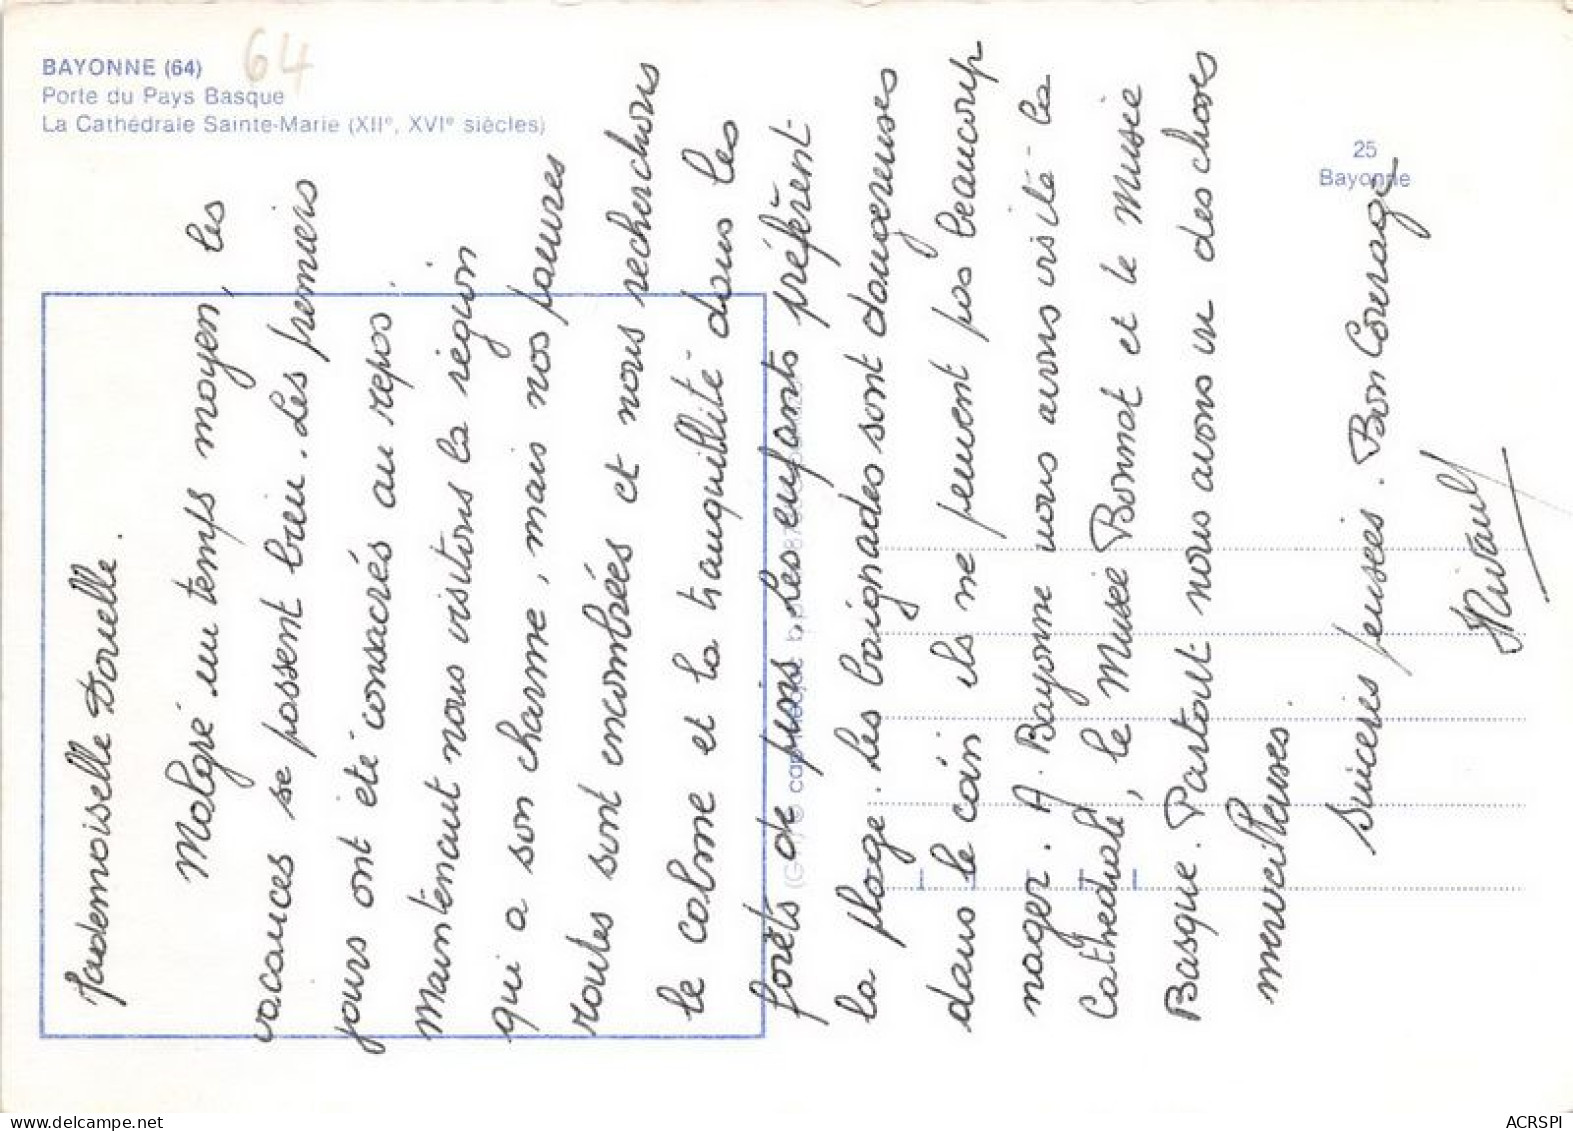 BAYONNE (64)
64
Porte du Pays Basque
La Cathédrale Sainte-Marie (XIIe, XVIe siècles)
25
Bayonne
Mademoiselle Douelle.
Malgré un temps moyen, les
vacances se passent bien. Les premiers
jours ont été consacrés au repos.
Maintenant nous visitons la région
qui a son charme, mais nos pauvres
routes sont encombrées et nous recherchons
le calme et la tranquillité dans les
forêts de pins. Les enfants préfèrent
la plage. Les baignades sont dangereuses
dans le coin ils ne peuvent pas beaucoup
nager. A Bayonne nous avons visité la
Cathédrale, le Musée Bonnat et le Musée
Basque. Partout nous avons vu des choses
merveilleuses.
Sincères pensées. Bon Courage
delcampe.net
ACRSPI